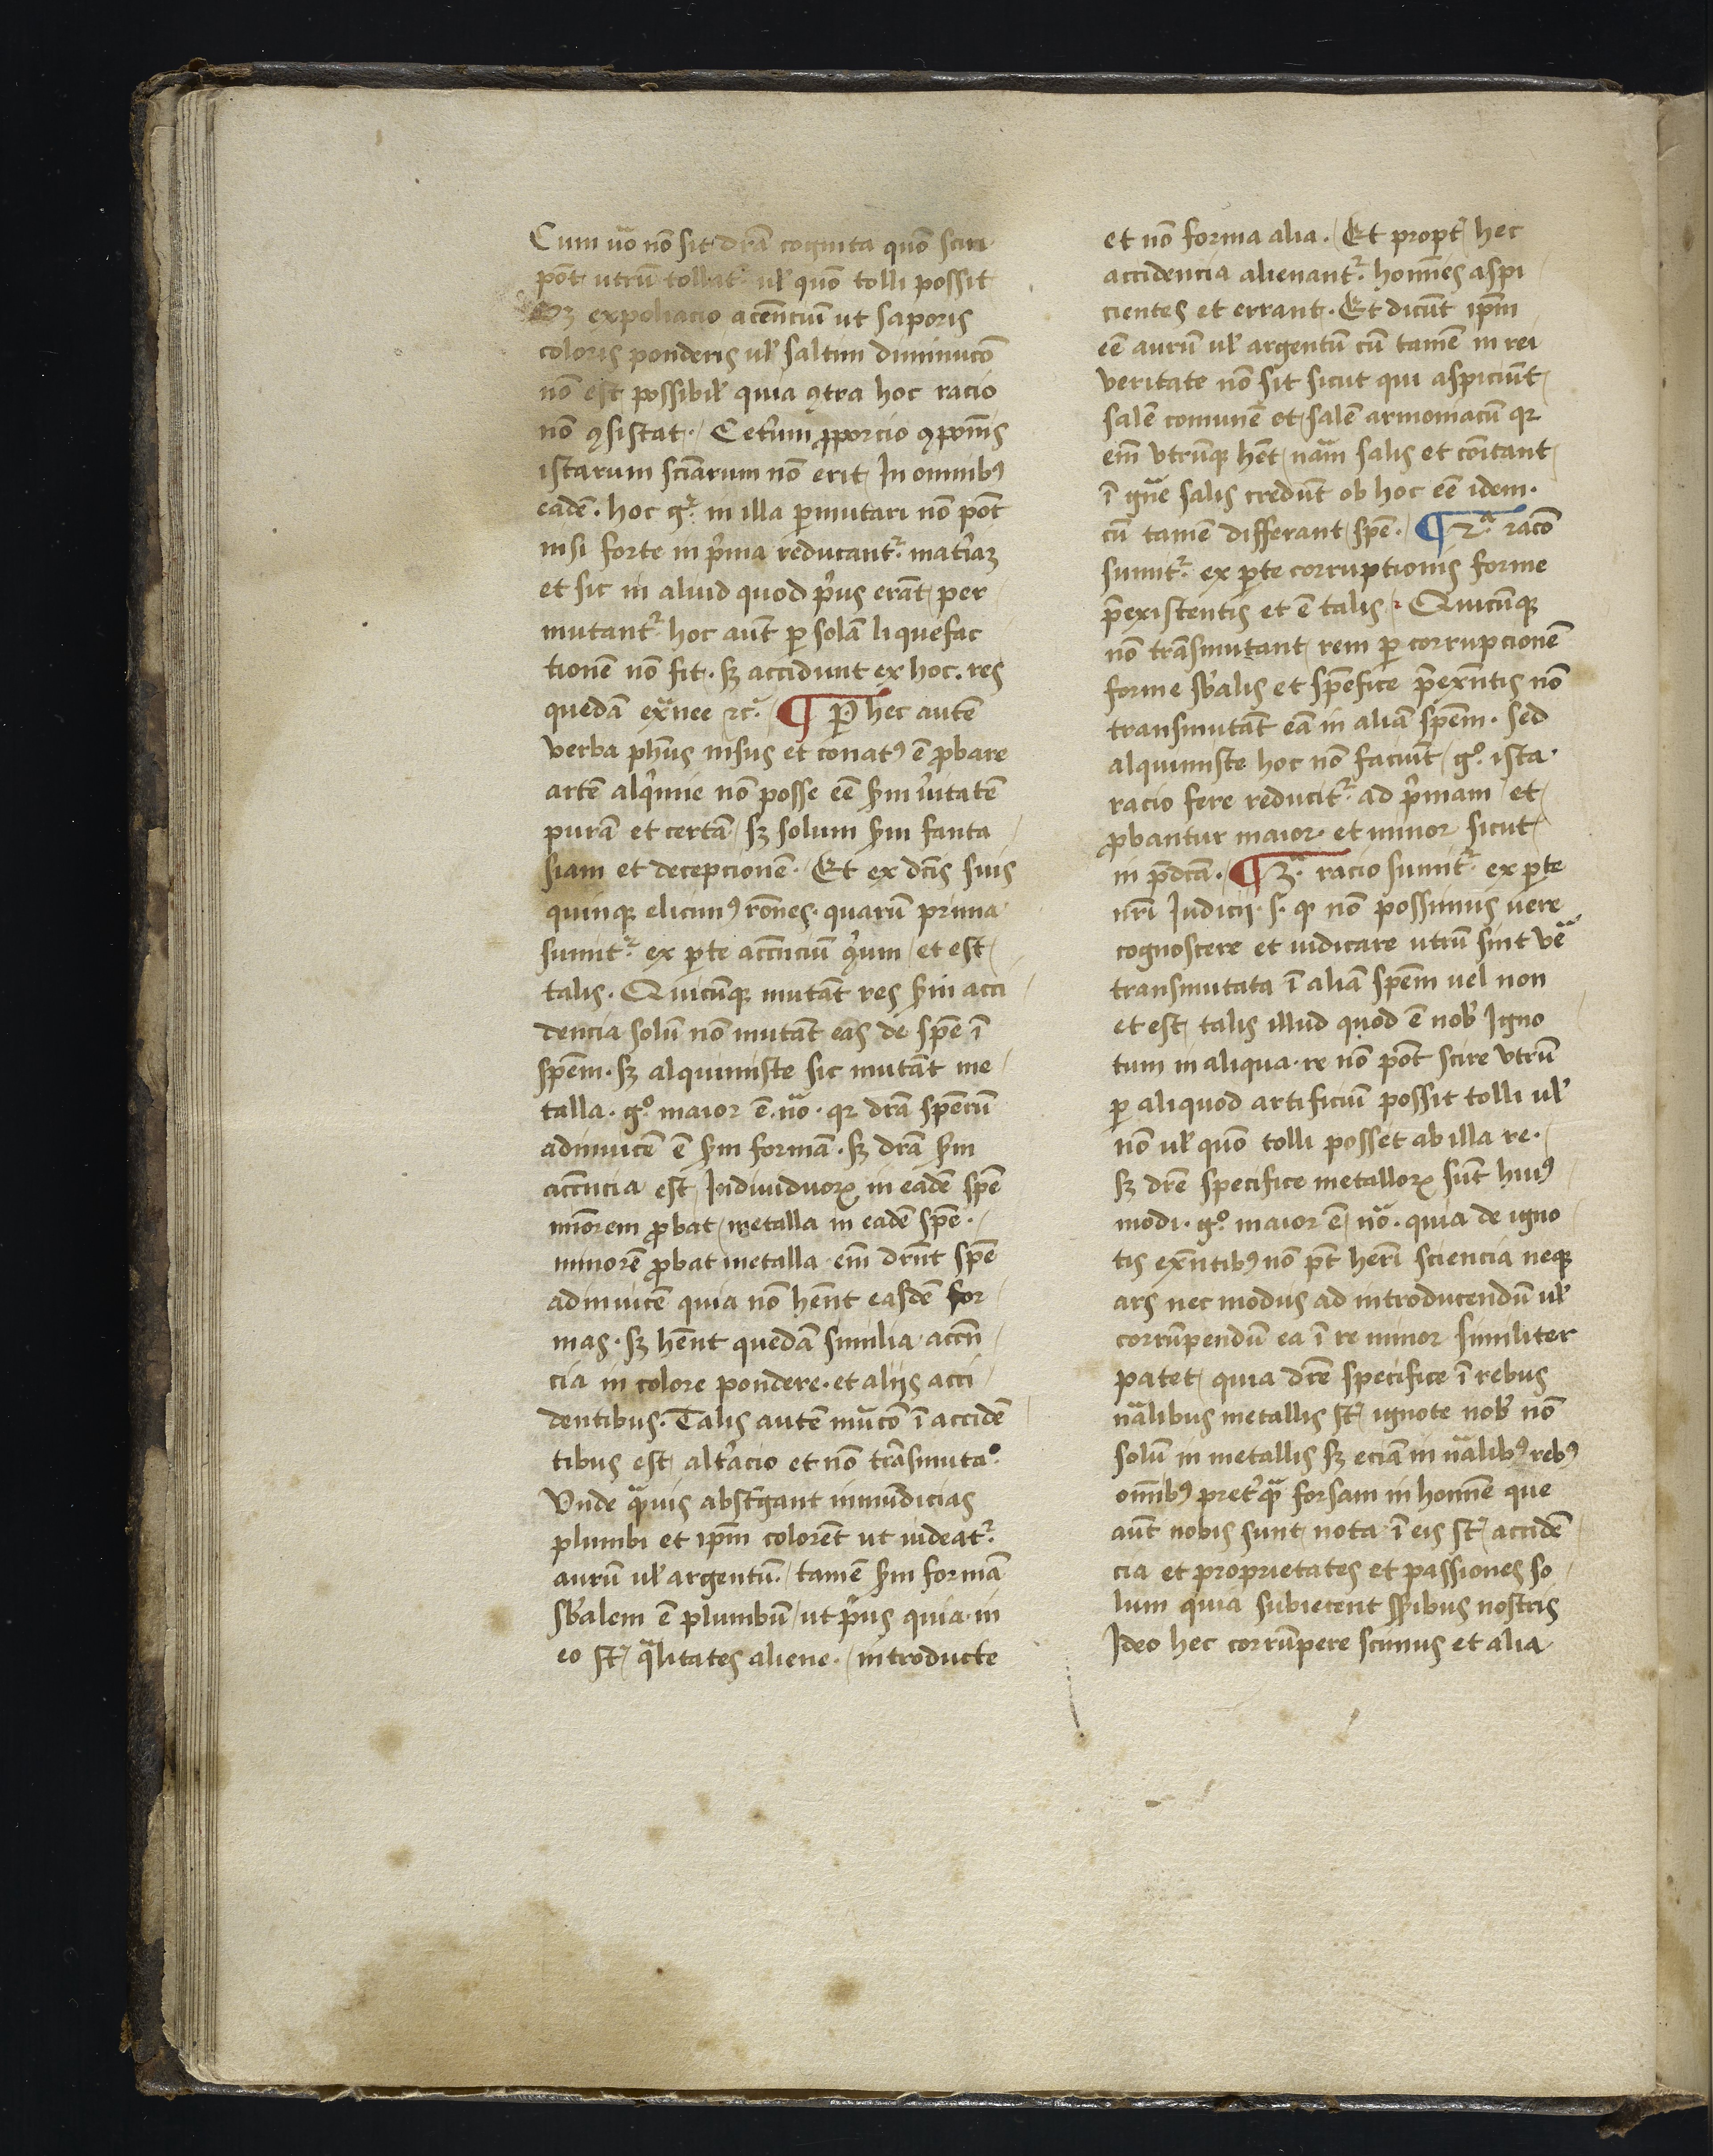 Cum uo̅ no̅ sit dr̅a̅ cognita quo̅ sciri
po̅t utru̅ tollatr̉ ul̕ quo̅ tolli possit
Sꝫ expoliacio acc̅enciu̅ ut saporis
coloris ponderis ul̕ saltim diminuco̅
no̅ est possibil̕ quia ꝯtra hoc racio
no̅ ꝯsistat · Cet̕um ꝓporcio ꝯpo̅nis
istarum sc̅iarum no̅ erit In omnibꝰ
eade̅ · hoc gͬ in illa ꝑmutari no̅ po̅t
nisi forte in p̕ma reducantr̉ mat̕iaꝫ
et sic in aliud quod p̕us era̅t per
mutantr̉ hoc au̅t ꝑ sola̅ liquefac
tione̅ no̅ fit · sꝫ accidunt ex hoc · res
queda̅ exᷓnee ⁊c̉ ¶ Ꝑ hec aute̅
verba ph̅us nisus et conatꝰ e̅ ꝓbare
arte̅ alq̕mie no̅ posse ee̅ sm̅ u̕itate̅
pura̅ et certa̅ sꝫ solum sm̅ fanta
siam et decepcione̅ · Et ex dc̅is suis
quinqꝫ elicimꝰ ro̅nes · quaru̅ prima
sumitr̉ ex ꝑte acc̅nciu̅ q̕um et est
talis · Quicu̅qꝫ muta̅t res sm̅ acci
dencia solu̅ no̅ muta̅t eas de spe̅ ı̅
spe̅m · sꝫ alquimiste sic muta̅t me
talla · gͦ maior e̅ no̅ · qꝛ dr̅a̅ spe̅ru̅
adinuice̅ e̅ sm̅ forma̅ · sꝫ dr̅a̅ sm̅
acc̅ncia est Indiuiduoꝝ in eade̅ spe̅
mi̅orem ꝓbat metalla in eade̅ spe̅ ·
minore̅ ꝓbat metalla · em̅ drn̅t spe̅
adinuice̅ quia no̅ he̅nt easde̅ for
mas · sꝫ he̅nt queda̅ similia acc̅n
cia in colore pondere · et alijs acci
dentibus · Talis aute̅ mu̅co̅ ı̅ accide̅
tibus est alt̕acio et no̅ tra̅smutaͦ
Vnde qᷓuis abst̕gant inmu̅dicias
plumbi et ip̅m colore̅t ut uideatr̉
auru̅ ul̕ argentu̅ · tame̅ sm̅ forma̅
sb̕alem e̅ plumbu̅ ut p̕us quia in
eo st̅ qᷓlitates aliene · introducte
et no̅ forma alia · Et propt̕ hec
accidencia alienantr̉ · hom̅es aspi
cientes et errant · Et dicu̅t ip̅m
ee̅ auru̅ ul̕ argentu̅ cu̅ tame̅ in rei
veritate no̅ sit sicut qui aspiciu̅t
sale̅ comune̅ et sale̅ armoniacu̅ qꝛ
em̅ vtru̅qꝫ he̅t na̅m salis et co̅itant
ı̅ gn̅e salis credu̅t ob hoc ee̅ idem ·
cu̅ tame̅ differant spe̅ · ¶ 2ᷓ raco̅
sumitr̉ ex ꝑte corruptionis forme
p̅existentis et e̅ talis · Quicu̅qꝫ
no̅ tra̅smutant rem ꝑ corrupcione̅
forme sb̕alis et spe̅fice p̅exn̅tis no̅
transmuta̅t ea̅ in alia̅ spe̅m · sed
alquimiste hoc no̅ faciu̅t gͦ ista ·
racio fere reducitr̉ ad p̕mam et
ꝓbantur maior · et minor sicut
in p̅dc̅a̅ · ¶ 3ᷓ racio sumitr̉ ex ꝑte
nr̅i Judicij · s · qꝛ no̅ possimus uere
cognoscere et iudicare utru̅ sint ve̅
transmutata ı̅ alia̅ spe̅m uel non
et est talis illud quod e̅ nob̕ Igno
tum in aliqua · re no̅ po̅t scire vtru̅
ꝑ aliquod artificiu̅ possit tolli ul̕
no̅ ul̕ quo̅ tolli posset ab illa re ·
sꝫ dr̅e̅ specifice metalloꝝ su̅t huiꝰ
modi · gͦ maior e̅ no̅ · quia de igno
tis exn̅tibꝰ no̅ p̅t heri̅ sciencia neqꝫ
ars nec modus ad introducendu̅ ul̕
corru̅pendu̅ ea ı̅ re minor similiter
patet quia dr̅e̅ specifice ı̅ rebus
na̅libus metallis st̅ ignote nob̕ no̅
solu̅ in metallis sꝫ ecia̅ in na̅libꝰ rebꝰ
om̅ibꝰ pret̕qᷓ forsam in hom̅e que
au̅t nobis sunt nota ı̅ eis st̅ accide̅
cia et proprietates et passiones so
lum quia subiecent spi̅bus nostris
Ideo hec corru̅pere scimus et alia